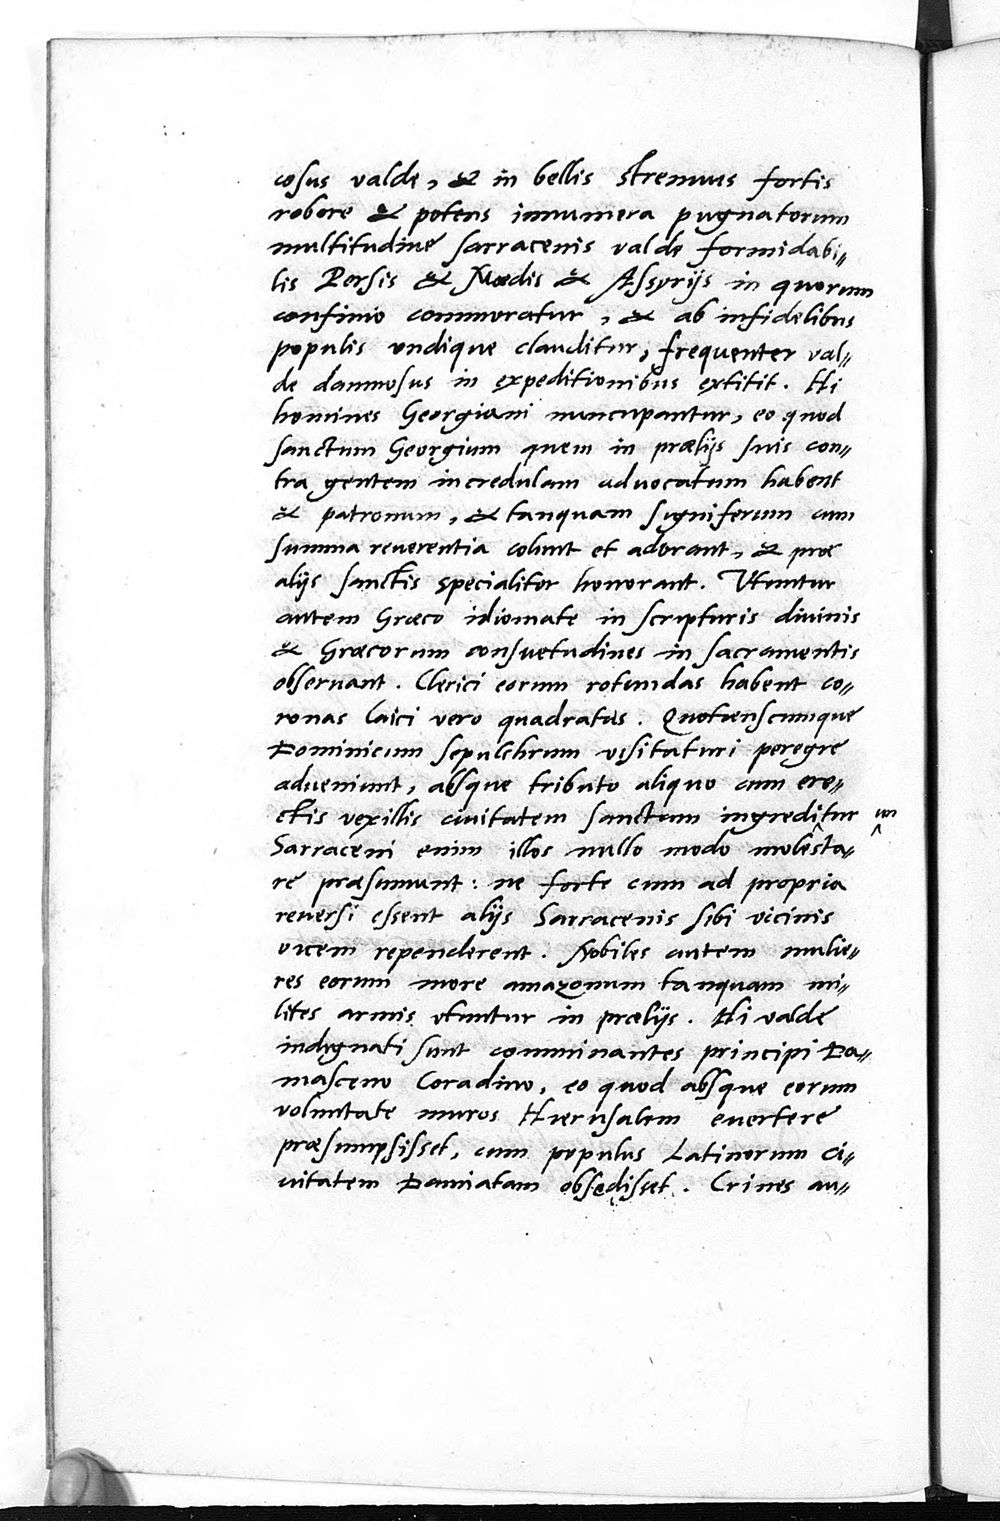 cosus valde, & in bellis strenuus fortis
robore & potens innumera pugnatorum
multitudine sarracenis valde formidabi〃
lis Persis & Mœdis & Assyrijs in quorum
confinio commoratur, & ab infidelibus
populis undique clauditur, frequenter val〃
de damnosus in expeditionibus extitit. Hi
homines Georgiani nuncupantur, eo quod
sanctum Georgium quem in prælijs suis con〃
tra gentem incredulam aduocatum habent
& patronum, & tanquam signiferum cum
summa reuerentia colunt et adorant, & præ
alijs sanctis specialiter honorant. Vtuntur
autem Græco idiomate in scripturis diuinis
& Græcorum consuetudines in sacramentis
obseruant. Clerici eorum rotundas habent co〃
ronas laici vero quadratas. Quotienscumque
Dominicum sepulchrum visitaturi peregre
adueniunt, absque tributo aliquo cum ere〃
ctis vexillis ciuitatem sanctam ingreditur un
Sarraceni enim illos nullo modo molesta〃
re præsumunt: ne forte cum ad propria
reuersi essent alijs Sarracenis sibi vicinis
vicem rependerent. Nobiles autem mulie〃
res eorum more amazonum tanquam mi〃
lites armis vtuntur in prælijs. Hi valde
indignati sunt comminantes principi Da〃
masceno Coradino, eo quod absque eorum
voluntate muros Hierusalem euertere
præsumpsisset, cum populus Latinorum ci〃
uitatem Damiatam obsedisset. Crines au〃